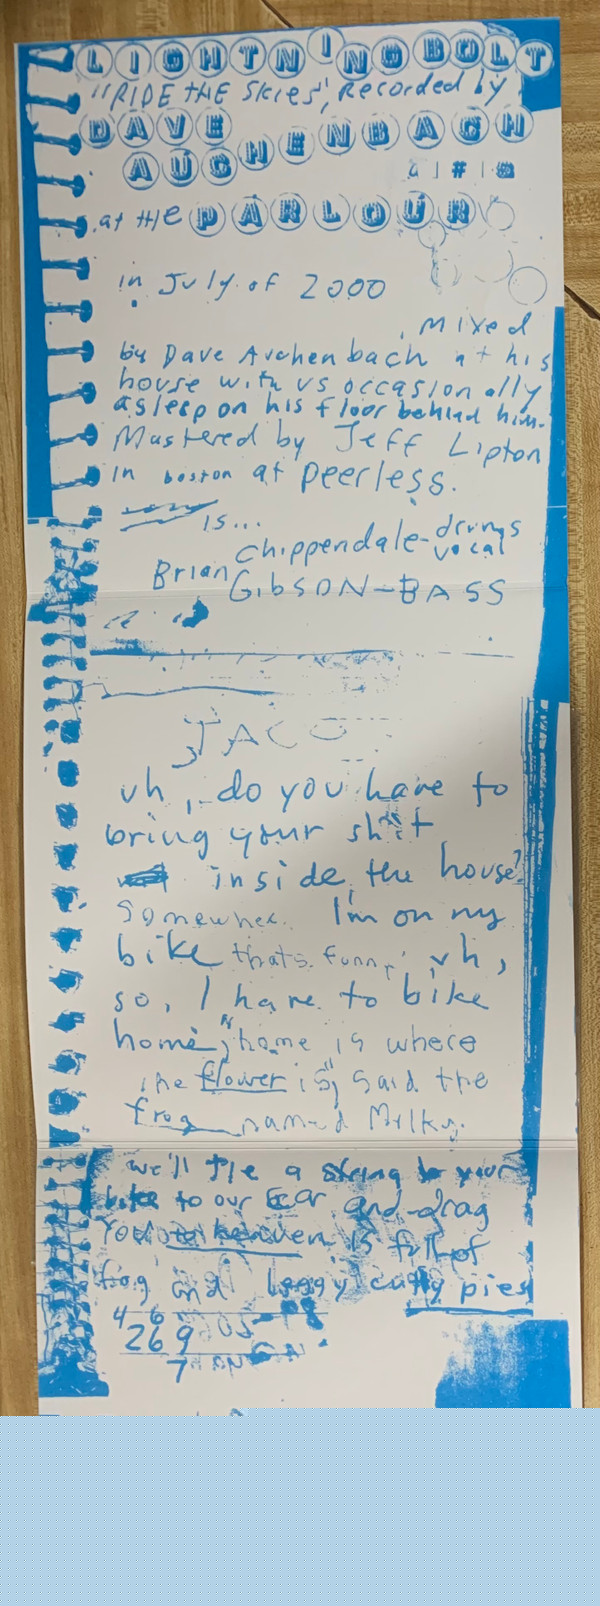 LIGHTNINGBOLT
"RIDE tHE SkiES", Recorded by
DAVE
AUCHENBACH
at tHe PARLOUR
in July of 2000
, mixed
by Dave Auchenbach at his
house with us occasionally
asleep on his floor behind him.
Mastered by Jeff Lipton
In boston at peerless.
is...
Chippendale-drums
vocal
Brian
GibSON-BASS
uh, do you have to
bring your shit
inside the house?
somewhere. I'm on my
bike that's funny. uh,
so, I have to bike
home, "home is where
the flower is", said the
frog named Milky.
we'll tie a string to your
bike to our Ecar and drag
You to heaven is full of
frog and leggy cutty pies
4 6
269
7